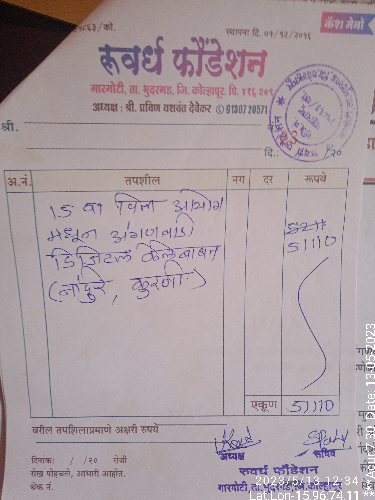 कॅश मेमो
स्थापना दि. ०१/१२/२०१६
रूवर्ध फौंडेशन
गारगोटी, ता. भुदरगड, जि. कोल्हापूर. पि. ४१६ २०९
अध्यक्ष : श्री. प्रविण यशवंत देवेकर 91307 20571
श्री.
दि.: / २०
अ.नं. तपशील नग दर रूपये
15 वा वित्त आयोग
मधून अंगणवाडी
51110
डिजिटल केलेबाबत
(नांदुरे, कुरणी)
एकूण 51110
वरील तपशिलाप्रमाणे अक्षरी रूपये
दिनांक: / /२० रोजी
रोख पोहचले, आभारी आहोत.
चेक नं.
अध्यक्ष सचिव
रूवर्ध फौंडेशन
गारगोटी ता.भुदरगड जि.कोल्हापूर
2023/5/13 12:34